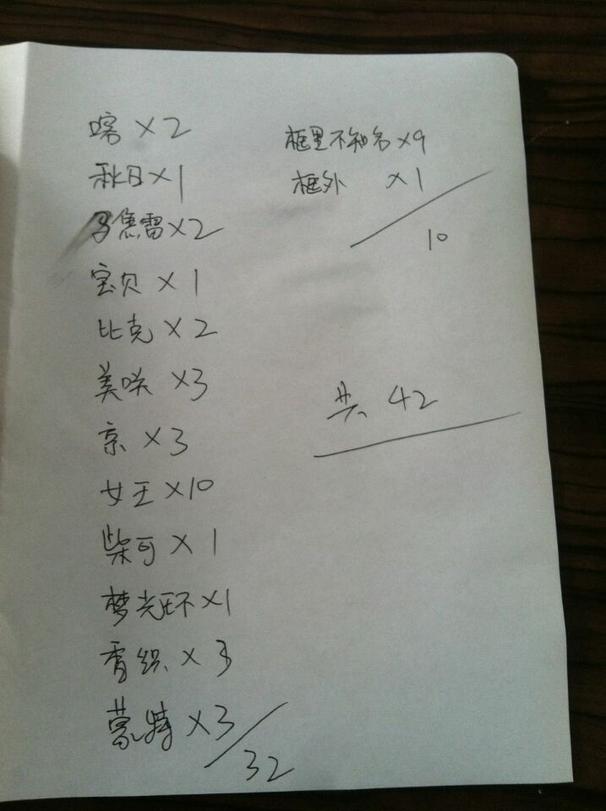 喀×2
秋日×1
焦雷×2
宝贝×1
比克×2
美咲×3
京×3
女王×10
柴可×1
梦光环×1
香织×3
蒙特×3
32
框里不知名×9
框外 ×1
10
共 42